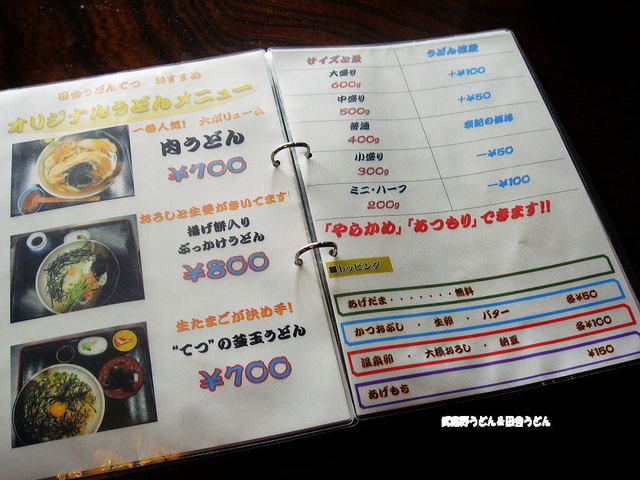 田舎うどんてつ おすすめ
オリジナルうどんメニュー
一番人気! 大ボリューム
肉うどん
¥700
おろしと生姜が効いてます!
揚げ餅入り
ぶっかけうどん
¥800
生たまごが決め手!
“てつ”の釜玉うどん
¥700
サイズと量 うどん値段
大盛り
600g +¥100
中盛り
500g +¥50
普通
400g 表記の価格
小盛り
300g -¥50
ミニ・ハーフ
200g -¥100
「やらかめ」「あつもり」できます!!
■トッピング
あげだま・・・・・・・・無料
かつおぶし ・ 生卵 ・ バター 各¥50
温泉卵 ・ 大根おろし ・ 納豆 各¥100
あげもち ¥150
武蔵野うどん&田舎うどん